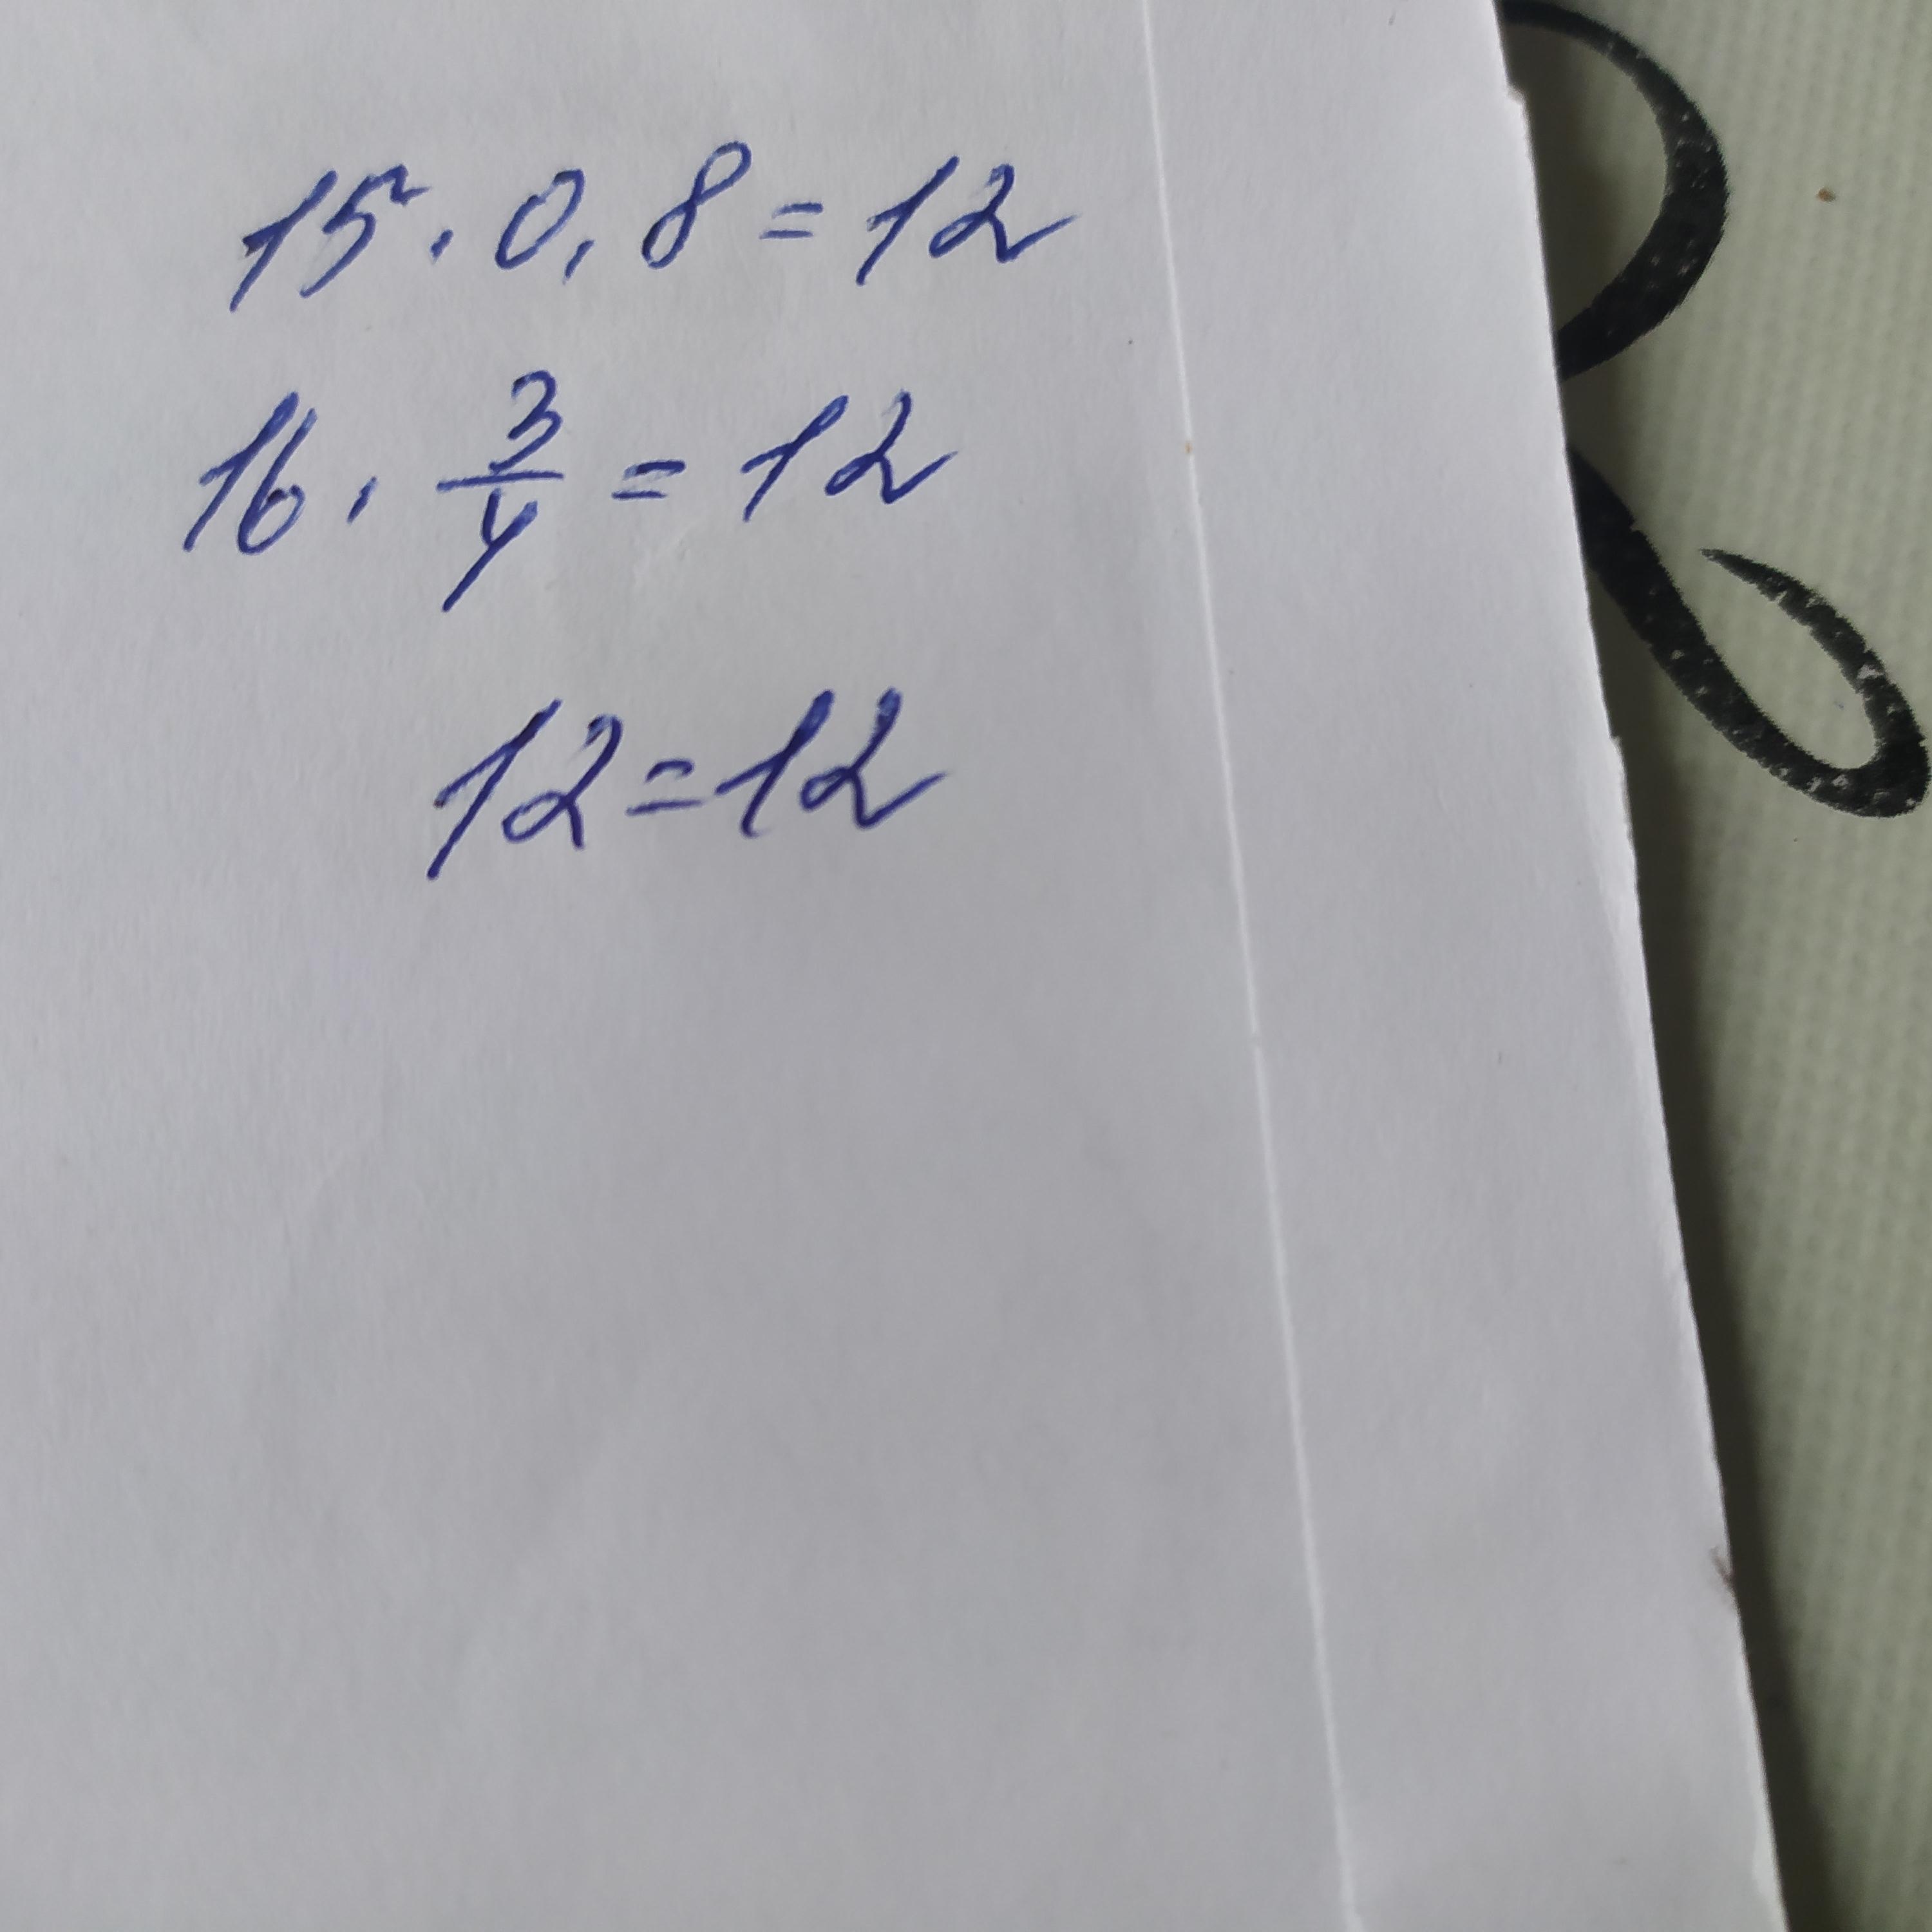 15 · 0,8 = 12
16 · 3/4 = 12
12 = 12